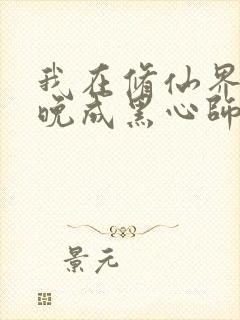 我在脩仙界
晚成黑心師
景元